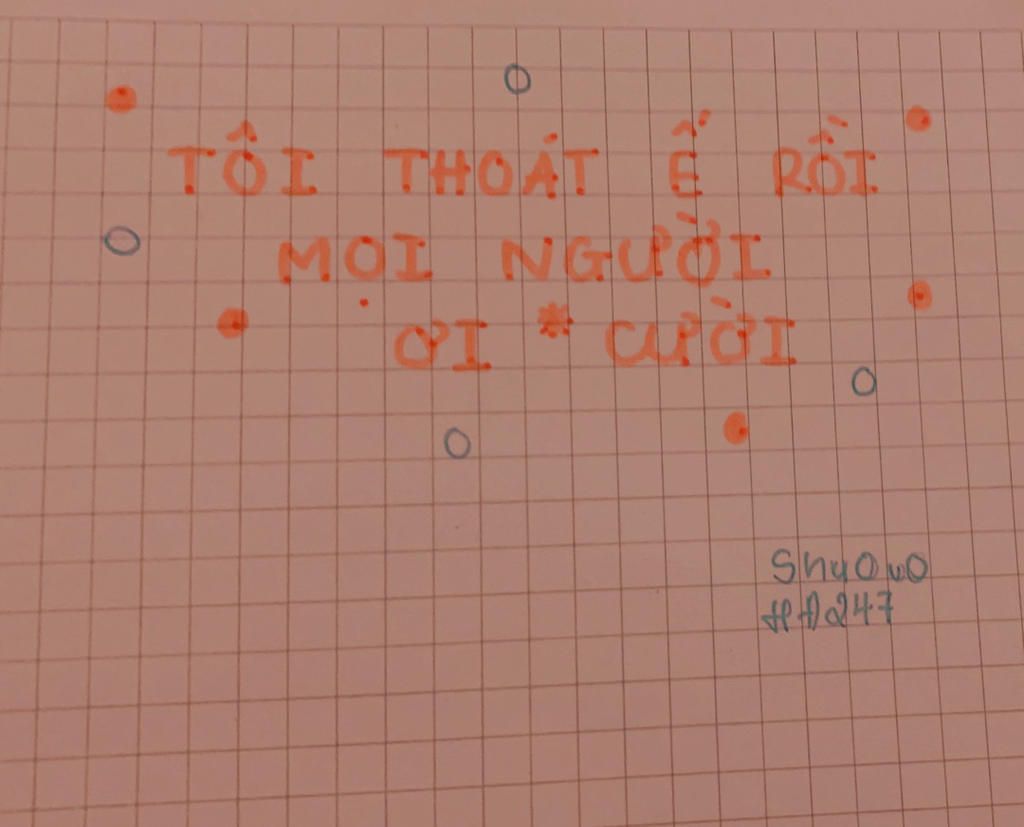 TÔI THOÁT Ế RỒI
MỌI NGƯỜI
ƠI * CƯỜI
ShyOuO
#A247